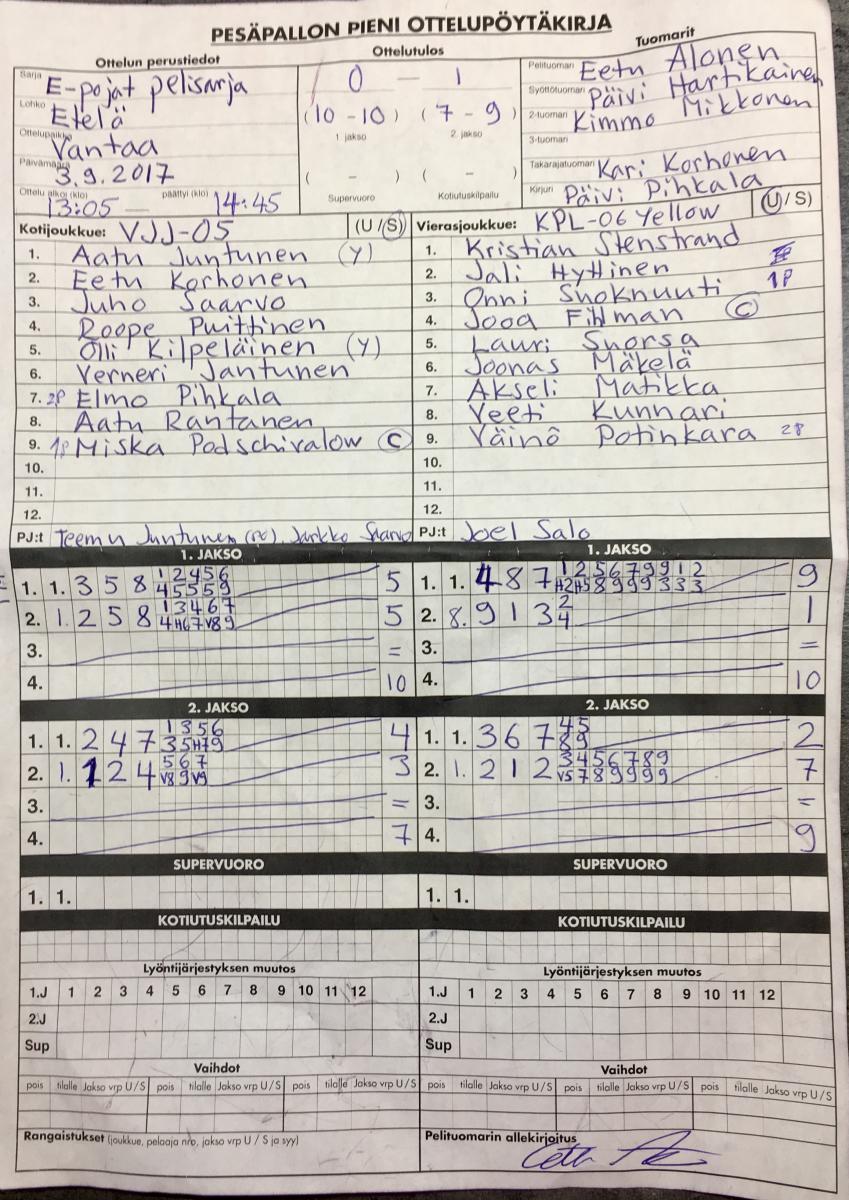 PESÄPALLON PIENI OTTELUPÖYTÄKIRJA
Ottelun perustiedot
Sarja E-pojat pelisarja
Lohko Etelä
Ottelupaikka Vantaa
Päivämäärä 3.9.2017
Ottelu alkoi (klo) 13:05 — päättyi (klo) 14:45
Ottelutulos
0 — 1
(10 - 10) (7 - 9)
1 jakso 2. jakso
( - ) ( - )
Supervuoro Kotiutuskilpailu
Tuomarit
Pelituomari Eetu Alonen
Syöttötuomari Päivi Hartikainen
2-tuomari Kimmo Mikkonen
3-tuomari
Takarajatuomari Kari Korhonen
Kirjuri Päivi Pihkala
Kotijoukkue: VJJ-05 (U/S)
1. Aatu Juntunen (Y)
2. Eetu Korhonen
3. Juho Saarvo
4. Roope Puittinen
5. Olli Kilpeläinen (Y)
6. Verneri Jantunen
7. 2P Elmo Pihkala
8. Aatu Rantanen
9. 1P Miska Podschivalow C
10.
11.
12.
PJ:t Teemu Juntunen (PC), Jarkko Saarvo
Vierasjoukkue: KPL-06 Yellow (U/S)
1. Kristian Stenstrand
2. Jali Hyttinen
3. Onni Suoknuuti 1P
4. Jooa Fihlman C
5. Lauri Suorsa
6. Joonas Mäkelä
7. Akseli Matikka
8. Veeti Kunnari
9. Väinö Potinkara 2P
10.
11.
12.
PJ:t Joel Salo
1. JAKSO
1. 1. 3 5 8 1 2 4 5 6 5
4 5 5 5 9
2. 1. 2 5 8 1 3 4 6 7 5
4 H6 7 V8 9
3. =
4. 10
1. JAKSO
1. 1. 4 8 7 1 2 5 6 7 9 9 1 2 9
H2 H5 8 9 9 9 3 3 3
2. 8. 9 1 3 2 1
4
3. =
4. 10
2. JAKSO
1. 1. 2 4 7 1 3 5 6 4
3 5 H7 9
2. 1. 1 2 4 5 6 7 3
V8 9 V9
3. =
4. 7
2. JAKSO
1. 1. 3 6 7 4 5 2
8 9
2. 1. 2 1 2 3 4 5 6 7 8 9 7
V5 7 8 9 9 9 9
3. =
4. 9
SUPERVUORO
1. 1.
SUPERVUORO
1. 1.
KOTIUTUSKILPAILU
KOTIUTUSKILPAILU
Lyöntijärjestyksen muutos
1.J 1 2 3 4 5 6 7 8 9 10 11 12
2.J
Sup
Lyöntijärjestyksen muutos
1.J 1 2 3 4 5 6 7 8 9 10 11 12
2.J
Sup
Vaihdot
pois tilalle Jakso vrp U / S pois tilalle Jakso vrp U / S pois tilalle Jakso vrp U / S
Vaihdot
pois tilalle Jakso vrp U / S pois tilalle Jakso vrp U / S pois tilalle Jakso vrp U / S
Rangaistukset (joukkue, pelaaja nro, jakso vrp U / S ja syy)
Pelituomarin allekirjoitus